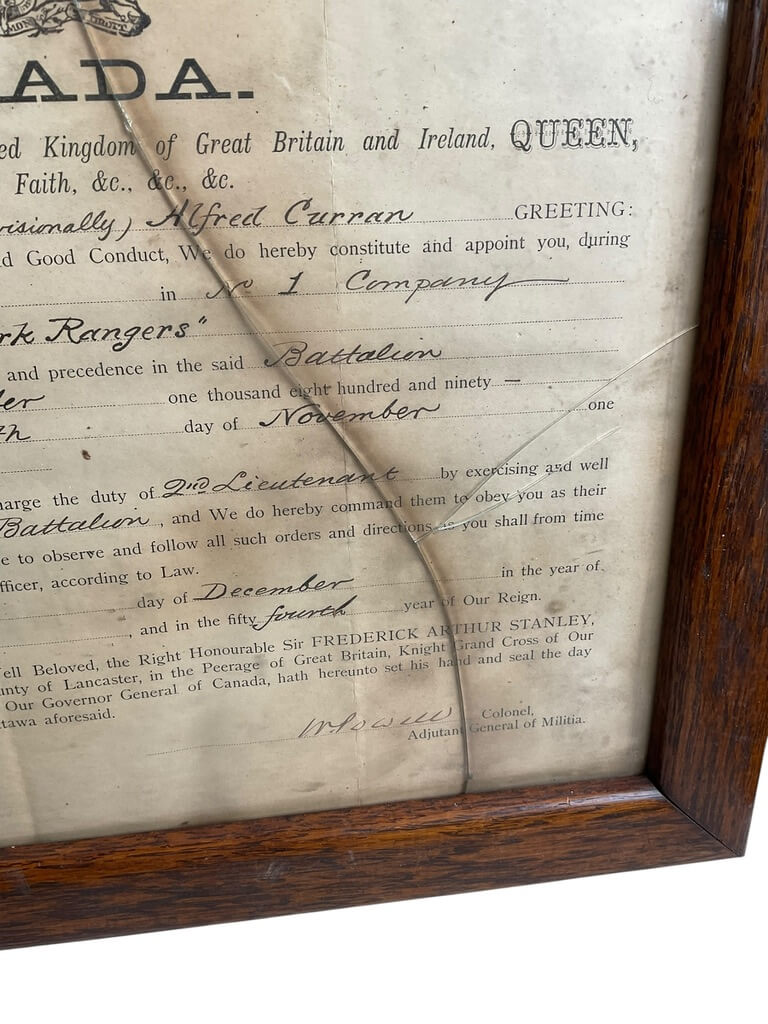 MON DROIT
ADA.
ed Kingdom of Great Britain and Ireland, QUEEN,
Faith, &c., &c., &c.
visionally) Alfred Curran GREETING:
d Good Conduct, We do hereby constitute and appoint you, during
in No 1 Company
rk Rangers"
and precedence in the said Battalion
er one thousand eight hundred and ninety —
th day of November one
harge the duty of 2nd Lieutenant by exercising and well
Battalion, and We do hereby command them to obey you as their
e to observe and follow all such orders and directions as you shall from time
fficer, according to Law.
day of December in the year of
, and in the fifty fourth year of Our Reign.
ell Beloved, the Right Honourable Sir FREDERICK ARTHUR STANLEY,
unty of Lancaster, in the Peerage of Great Britain, Knight Grand Cross of Our
Our Governor General of Canada, hath hereunto set his hand and seal the day
tawa aforesaid.
W Powell Colonel,
Adjutant General of Militia.